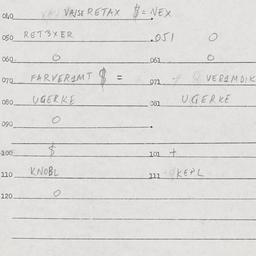 040 VAJSERETAX $ = NEX
050 RET3XER .051 0
060 0 061 0
070 FARVER1MT $ = 071 VER1MDIK
080 UGERKE 081 UGERKE
090 0
100 $ 101 +
110 KNOBL 111 KEPL
120 0